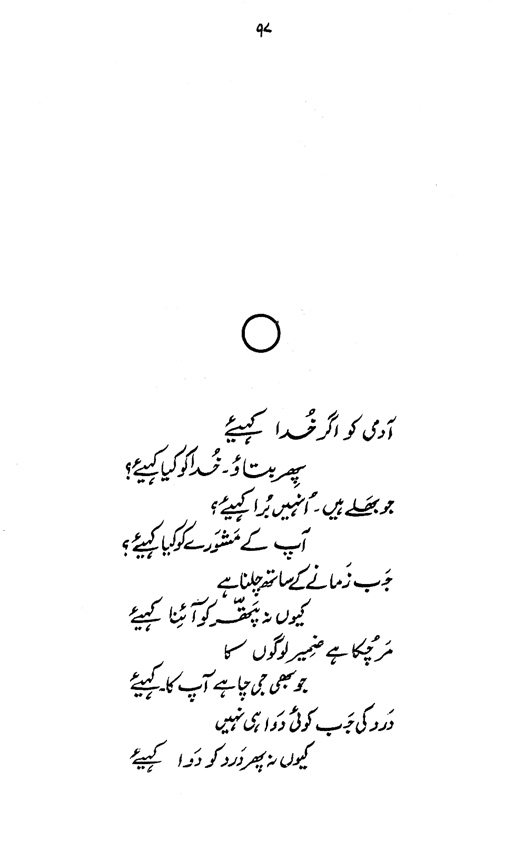 ۹۷
آدمی کو اگر خُدا کہیئے
پھِر بتاؤ۔ خُدا کو کیا کہیئے؟
جو بھَلے ہیں۔ اُنہیں بُرا کہیئے؟
آپ کے مَشوَرے کو کیا کہیئے؟
جَب زَمانے کے ساتھ چلنا ہے
کیوں نہ پتھّر کو آئِنا کہیئے
مَر چُکا ہے ضمِیر لوگوں کا
جو بھی جی چاہے آپ کا۔ کہیئے
دَرد کی جَب کوئی دَوا ہی نہیں
کیوں نہ پھِر دَرد کو دَوا کہیئے